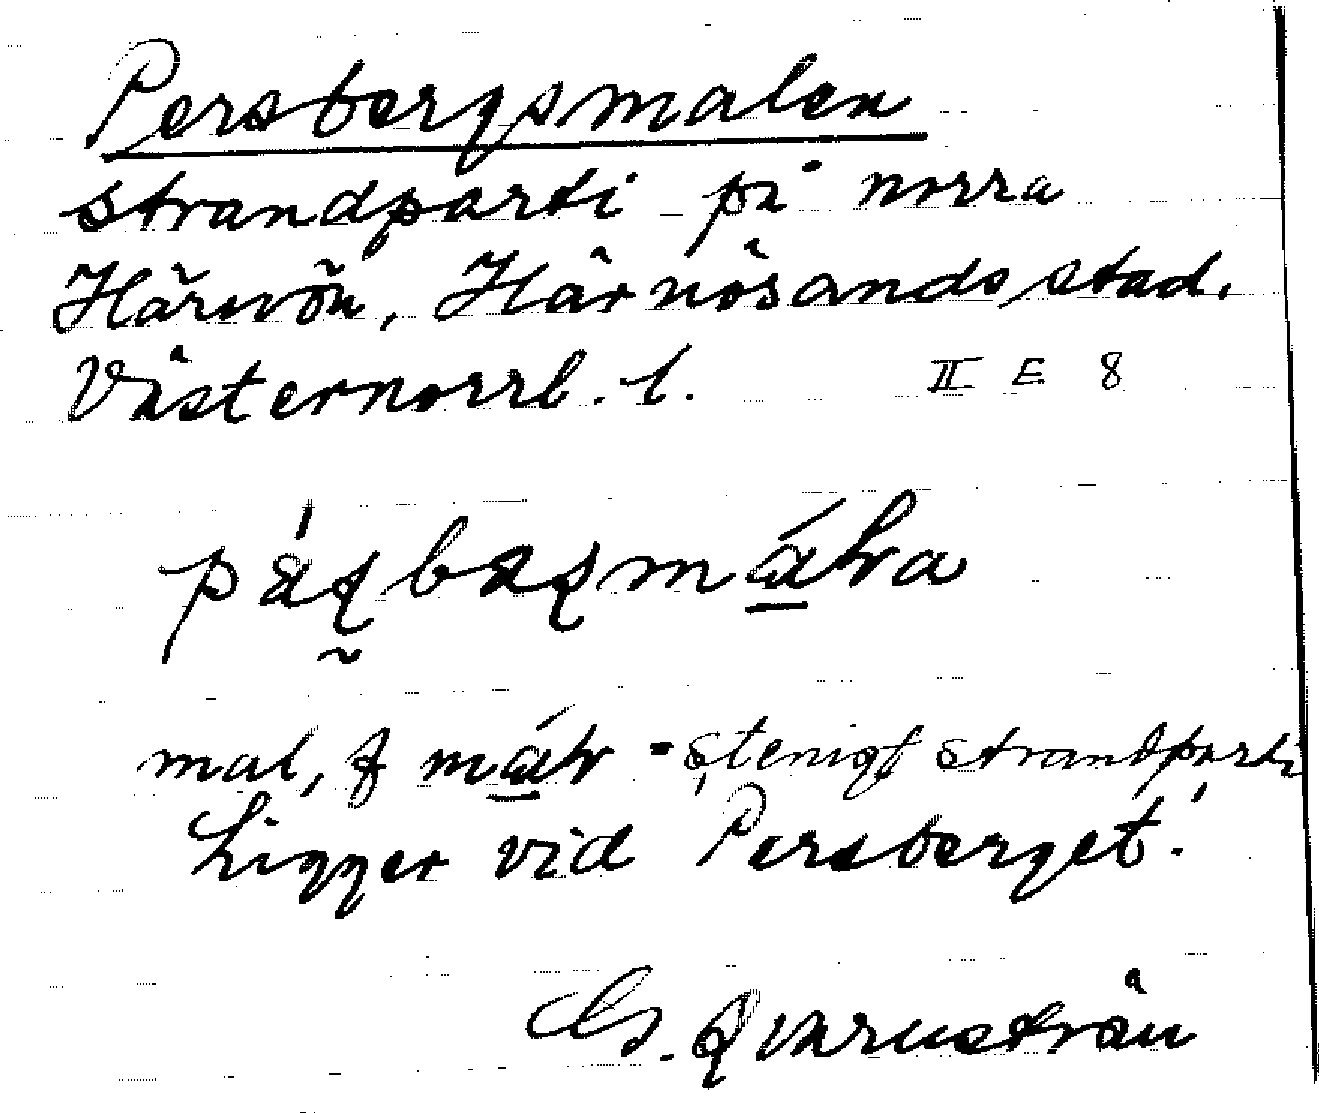 Persbergsmalen
strandparti på norra
Härnön, Härnösands stad.
Västernorrl. l. II E 8
mal, f - stenigt strandparti
Ligger vid Persberget.
G. Qvarnström